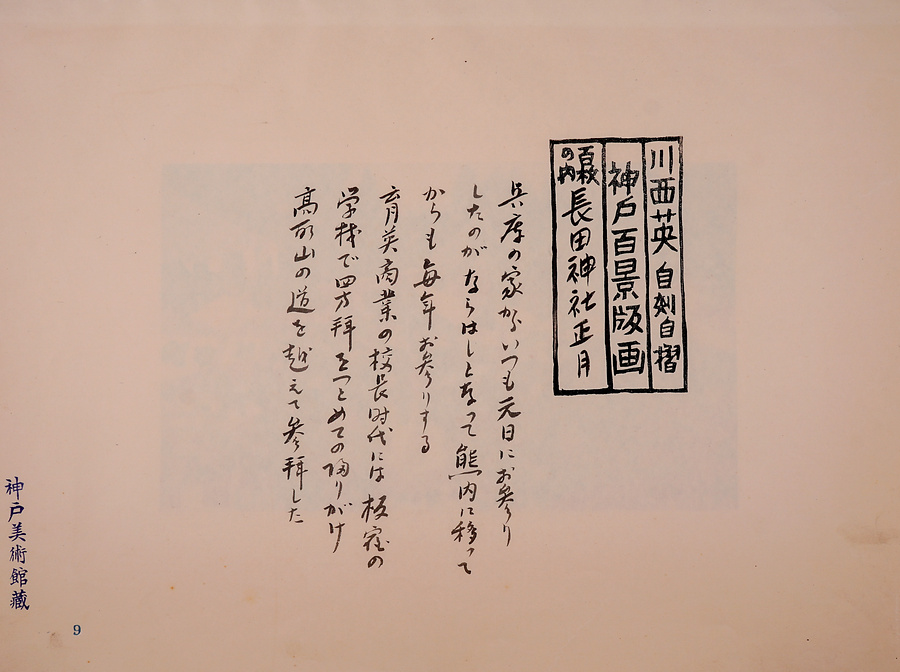 川西英 自刻自摺
神戸百景版画
百枚の内 長田神社正月
兵庫の家からいつも元日にお参り
したのがならはしとなって熊内に移って
からも毎年お参りする
育英商業の校長時代には板宿の
学校で四方拝をつとめての帰りがけ
高取山の道を越えて参拝した
神戸美術館蔵
9